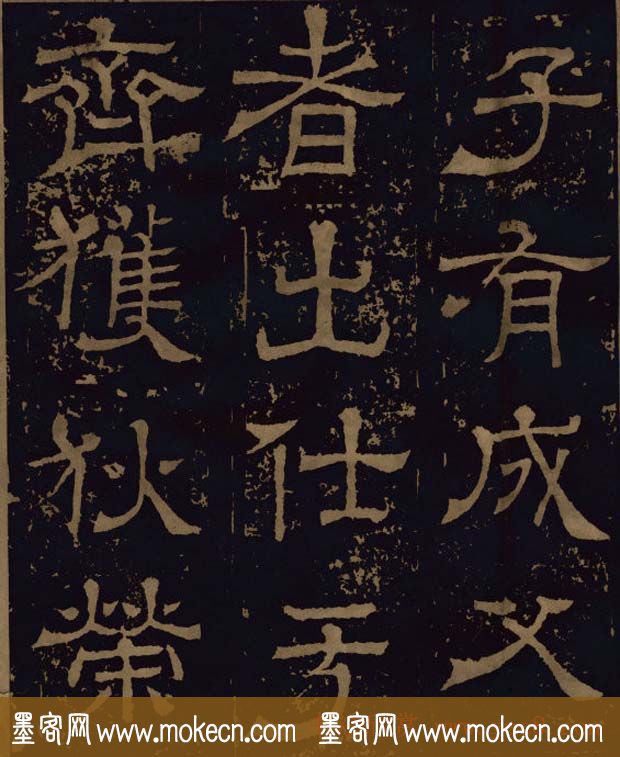 子有成父
者出仕于
齊獲狄榮
墨客网 www.mokecn.com 墨客网 www.mokecn.com